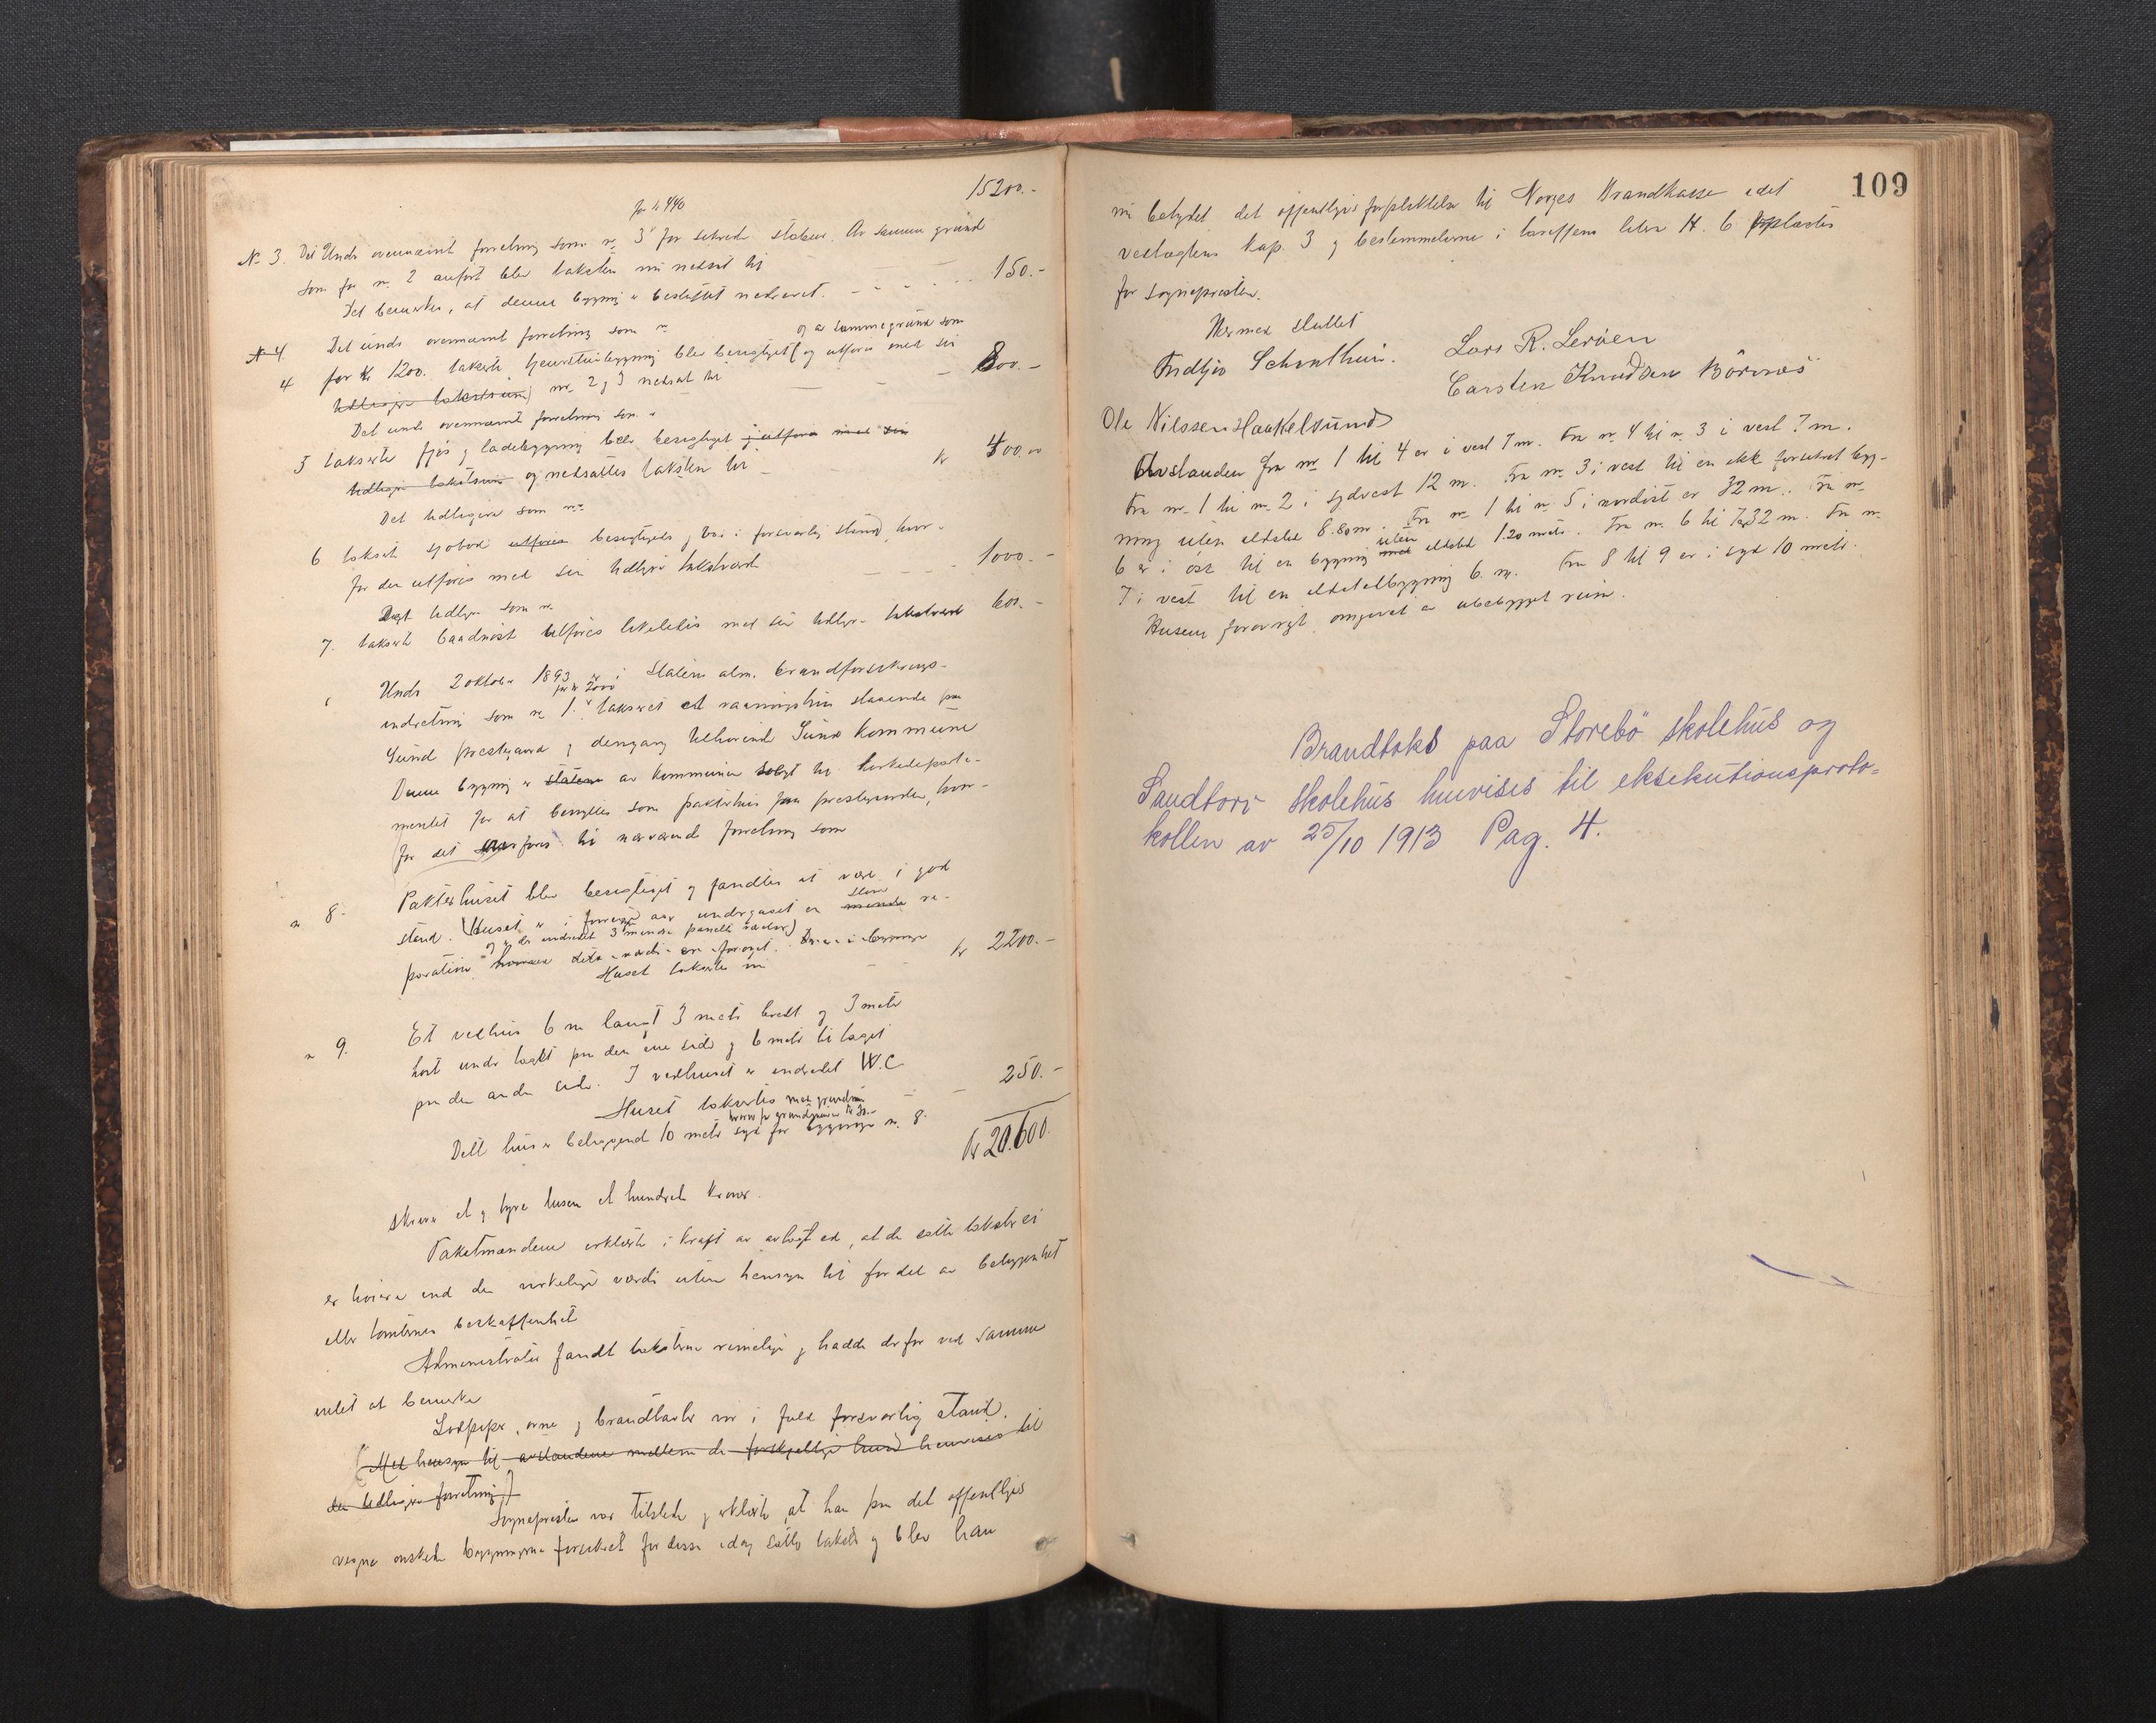 15200.-
for kr 440
No 3. Det Under ovennævnt forretning som no 3 forsikrede stabur. Av samme grund
som for no. 2 anført blev taksten nu nedsat til 150.-
Det bemerkes, at denne bygning er besluttet nedrevet.
No 4. Det under ovennævnt forretning som no
og av samme grund som
4 for kr 1200. takserte bygning blev besigtiget (og utføres med sin
tidligere takstsum) nr. 2 og 3 nedsat til 800.-
Det under ovennævnt forretning som no
5 takserte fjøs og ladebygning blev besigtiget og utføres med sin
tidligere takstsum og nedsattes taksten til kr 400.00
Det tidligere som no
6 taksert sjøbod utføres besigtigedes og var i forsvarlig stand, hvor-
for den utføres med sin tidligere takstværdi 1000.-
Det tidligere som no
7. takserte baadnøst utføres likeledes med sin tidligere takstværdi 600.-
Under 2 oktober 1893 er i Statens alm. brandforsikrings-
for kr 2000
indretning som no 1. taksert et vaaningshus staaende paa
Sund prestegaard og dengang tilhørende Sund kommune
Denne bygning er staten av kommunen solgt til kirkedeparte-
mentet for at benyttes som pakterhus paa prestegaarden, hvor-
for det overføres til nærværende forretning som
no 8. Pakterhuset blev besigtiget og fandtes at være i god
stand. Huset er i forrige aar undergaaet en mindre re-
større
og er der indredet 3 mindre panelte værelser)
paration hvorved dets værdi er forøget. bygning
Huset takseres nu kr 2200.-
no 9. Et vedhus 6 m langt 3 meter bredt og 3 meter
høit under taget paa den ene side og 6 meter til taget
paa den anden side. I vedhuset er indredet W.C.
Huset takseres med grundmur 250.-
hvorav for grundmuren kr 50.-
Dette hus er beliggende 10 meter syd for bygning no. 8.
Kr 20.600.
skriver et og tyve tusen et hundrede kroner.
Takstmændene erklærte i kraft av avlagt ed, at de satte takster ei
er høiere end den virkelige værdi uten hensyn til fordel av beliggenhet
eller tomternes beskaffenhet
Administrator fandt taksterne rimelige og hadde derfor ved samme
intet at bemerke
Lodpiper, ovne og brandtavler var i fuld forsvarlig stand.
(Med hensyn til avstandene mellem de forskjellige hus henvises til
den tidligere forretning)
Sognepresten var tilstede og erklærte, at han paa det offentliges
vegne ønskede bygningerne forsikret for disse idag satte takster og blev han
109
nu betydet det offentliges forpliktelse til Norges Brandkasse idet
vedtægtens kap. 3 og bestemmelserne i litra H. 6 oplæstes
for sognepresten.
Hermed sluttet
Fridtjov Schonthun.
Lars R. Lerøen
Carsten Knudsen Börnæs
Ole Nilssen Haakelsund
Avstanden fra no 1 til 4 er i vest 7 m. Fra no 4 til no 3 i vest 7 m.
Fra no 1 til no 2 i sydvest 12 m. Fra no 3 i vest til en ikke forsikret byg-
ning uten ildsted 8.80 m. Fra no 1 til no 5 i nordost er 32 m. Fra no
uten
6 er i øst til en bygning med ildsted 1.20 meter. Fra no 6 til 7 32 m. Fra no
7 i vest til en ildstedbygning 6 m. Fra 8 til 9 er i syd 10 meter.
Husene forøvrigt omgivet av ubebygget rum.
Brandtakst paa Storebö skolehus og
Sandtorv skolehus henvises til eksekutionsproto=
kollen av 25/10 1913 Pag. 4.